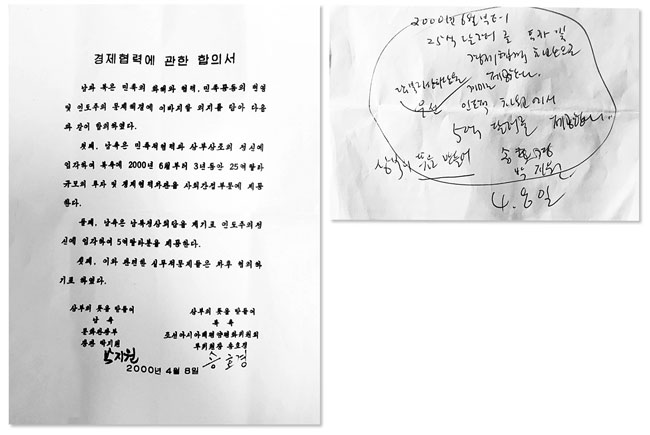 경제협력에 관한 합의서
남과 북은 민족의 화해와 협력, 민족공동의 번영
및 인도주의 문제해결에 이바지할 의지를 담아 다음
과 같이 합의하였다.
첫째, 남측은 민족적협력과 상부상조의 정신에
입각하여 북측에 2000년 6월부터 3년동안 25억딸라
규모의 투자 및 경제협력차관을 사회간접부문에 제공
한다.
둘째, 남측은 남북정상회담을 계기로 인도주의정
신에 입각하여 5억딸라분을 제공한다.
셋째, 이와 관련한 실무적문제들은 차후 협의하
기로 하였다.
상부의 뜻을 받들어 상부의 뜻을 받들어
남 측 북 측
문화관광부 조선아시아태평양평화위원회
장관 박지원 부위원장 송호경
박지원 송호경
2000년 4월 8일
2000년 6월부터
25억 달러를 투자 및
경제협력 차관으로
제공한다.
우선 인도적 차원에서
5억 달러를 제공한다.
상부의 뜻을 받들어 송호경
박지원
4. 8일